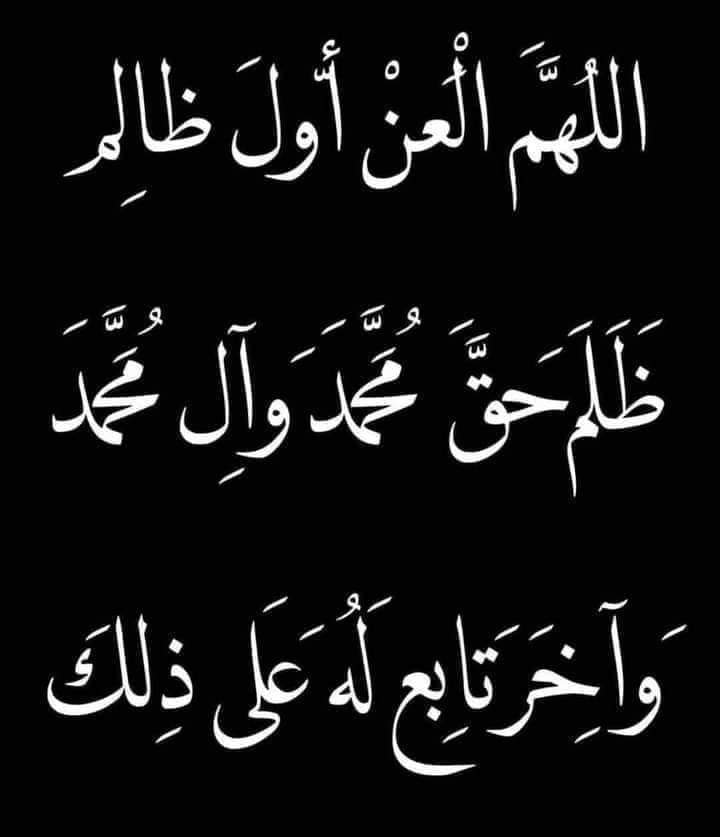 اللهُمَّ الْعنْ أَّولَ ظالِم
ظَلَمَ حَقَّ مُحَمَّدَ وَآلِ مُحَمَّدَ
وَآخِرَ تَابِع لَهُ عَلَى ذِلكَ